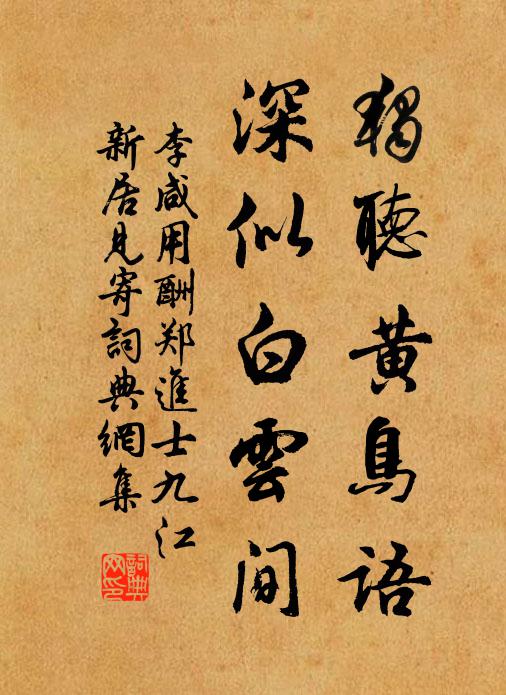 獨聽黃鳥語
深似白雲間
李咸用酬郑進士九江
新居見寄詞典網集
詞典
网印